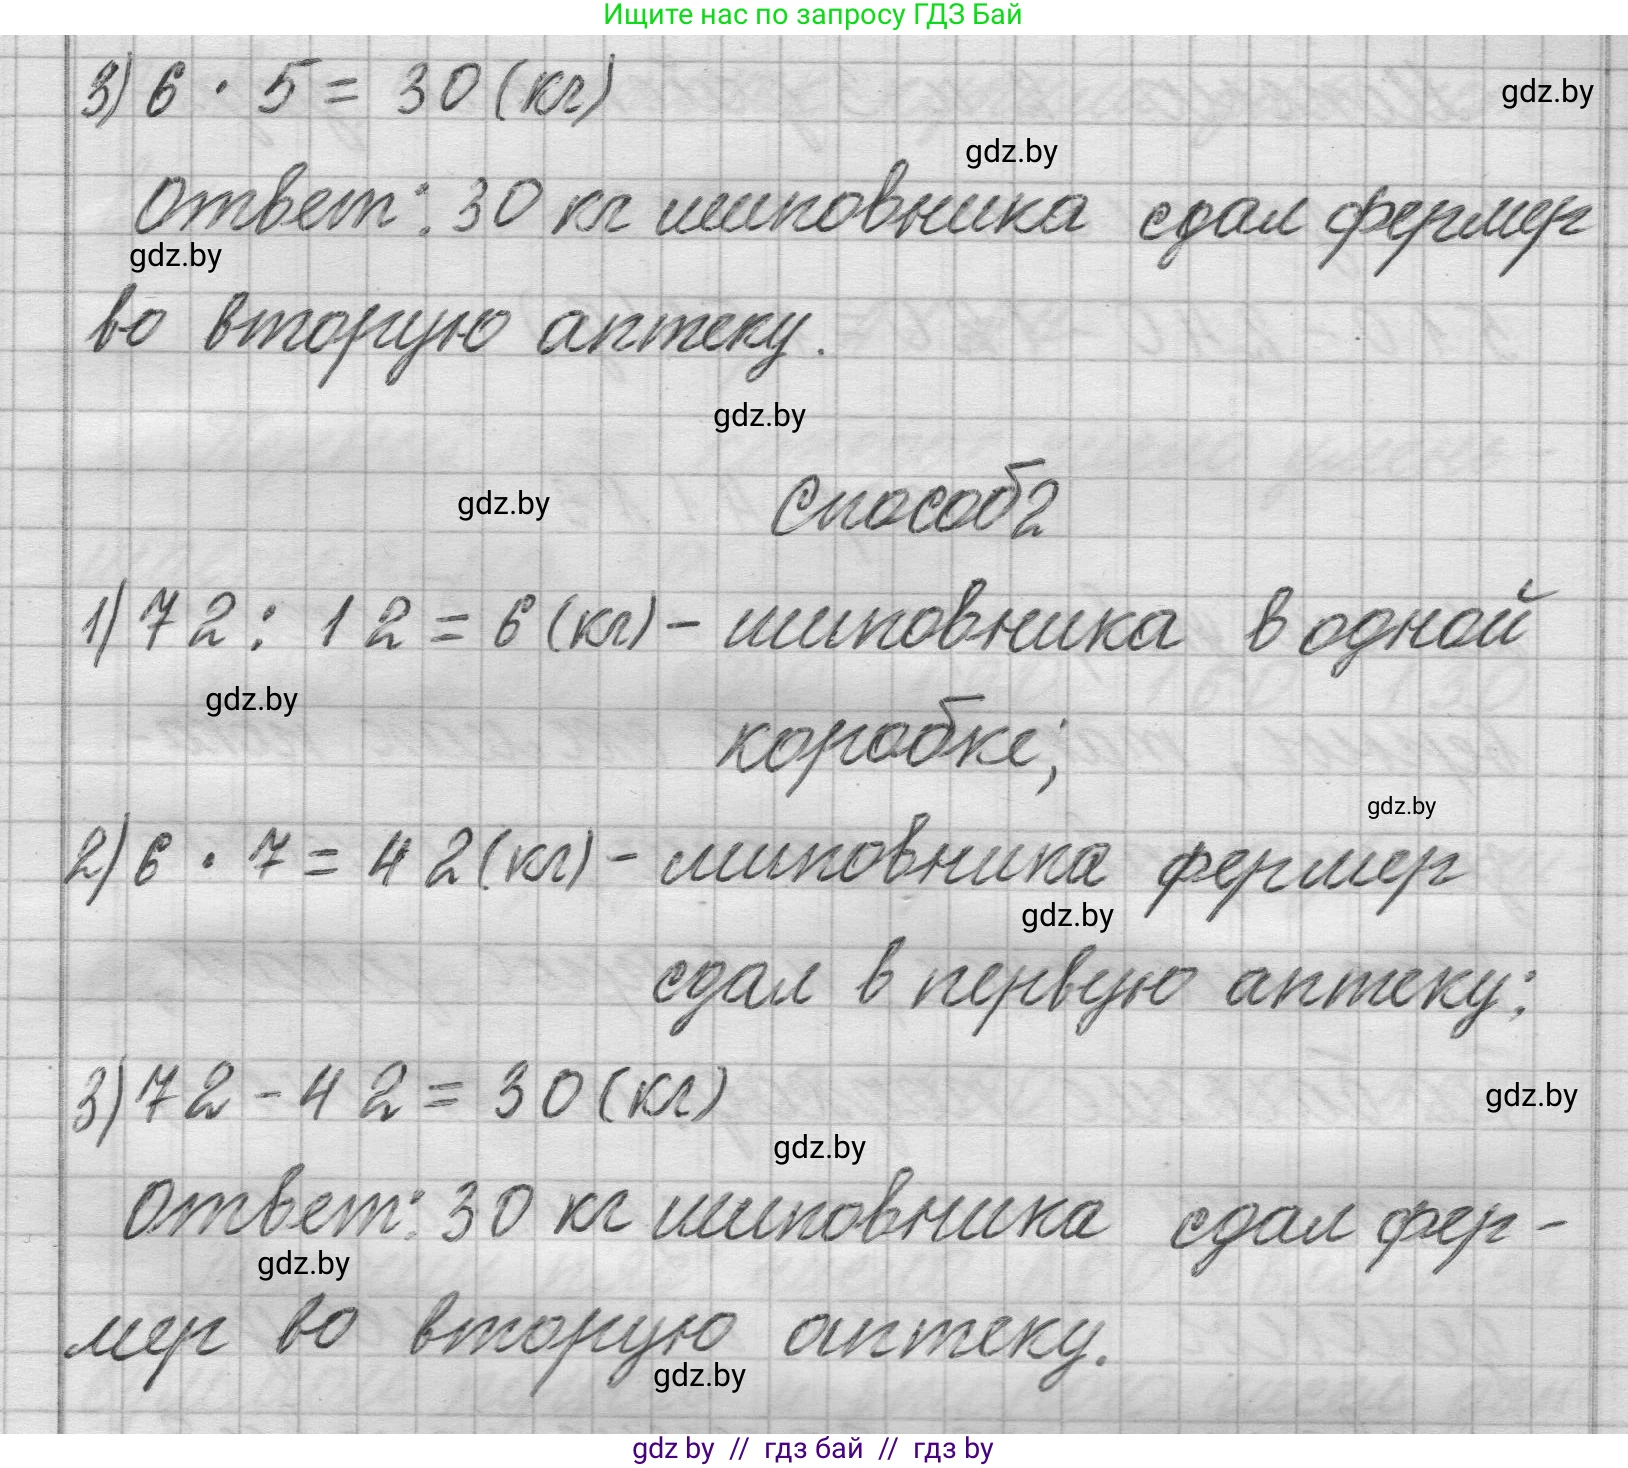 Ищите нас по запросу ГДЗ Бай
3) 6 · 5 = 30 (кг)
gdz.by
gdz.by
Ответ: 30 кг шиповника сдал фермер
gdz.by
во вторую аптеку.
gdz.by
Способ 2
gdz.by
1) 72 : 12 = 6 (кг) – шиповника в одной
gdz.by
коробке;
gdz.by
2) 6 · 7 = 42 (кг) – шиповника фермер
gdz.by
сдал в первую аптеку;
3) 72 – 42 = 30 (кг)
gdz.by
gdz.by
Ответ: 30 кг шиповника сдал фер-
gdz.by
мер во вторую аптеку.
gdz.by
gdz by // гдз бай // гдз by